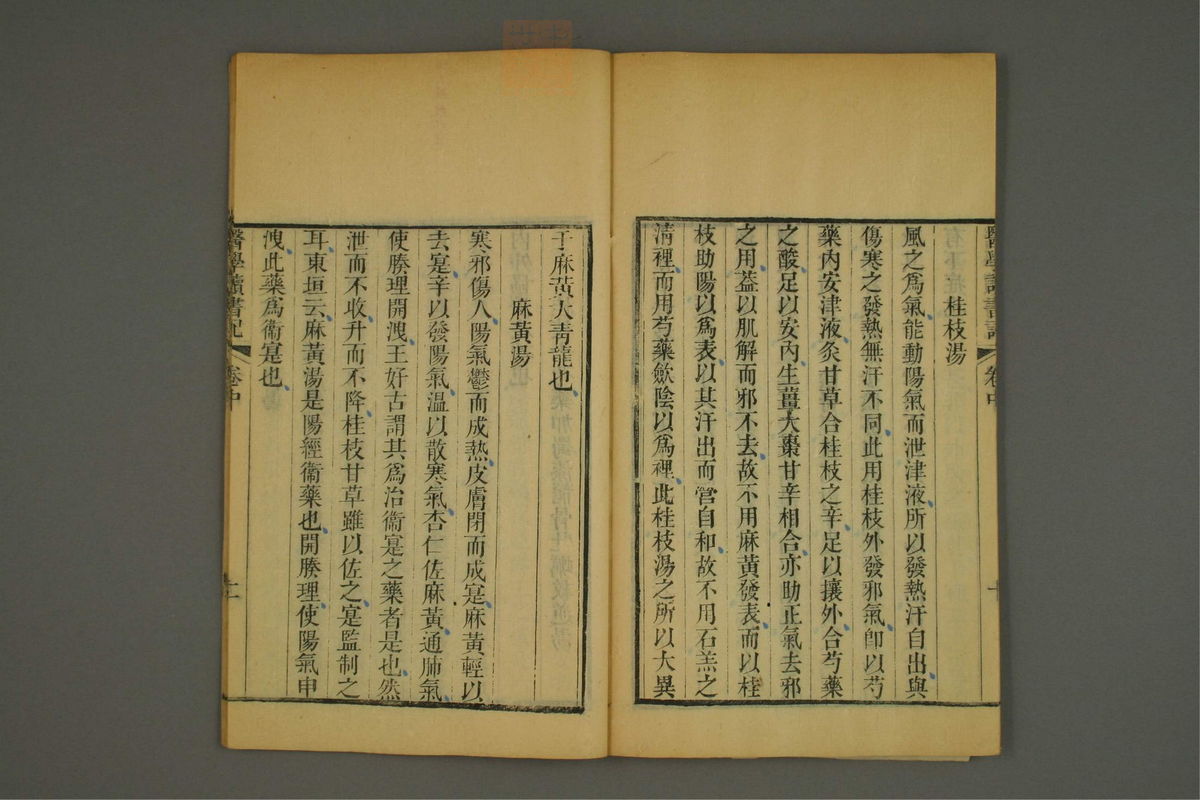 桂枝湯
風之爲氣能動陽氣而泄津液所以發熱汗自出與
傷寒之發熱無汗不同此用桂枝外發邪氣卽以芍
藥內安津液炙甘草合桂枝之辛足以攘外合芍藥
之酸足以安內生薑大棗甘辛相合亦助正氣去邪
之用葢以肌解而邪不去故不用麻黃發表而以桂
枝助陽以爲表以其汗出而營自和故不用石羔之
淸裡而用芍藥斂陰以爲裡此桂枝湯之所以大異
于麻黃大靑龍也
麻黃湯
寒邪傷人陽氣鬱而成熱皮膚閉而成寔麻黃輕以
去寔辛以發陽氣溫以散寒氣杏仁佐麻黃通肺氣
使腠理開洩王好古謂其爲治衞寔之藥者是也然
泄而不收升而不降桂枝甘草雖以佐之寔監制之
耳東垣云麻黃湯是陽經衞藥也開腠理使陽氣申
洩此藥爲衞寔也
醫學讀書記
卷中